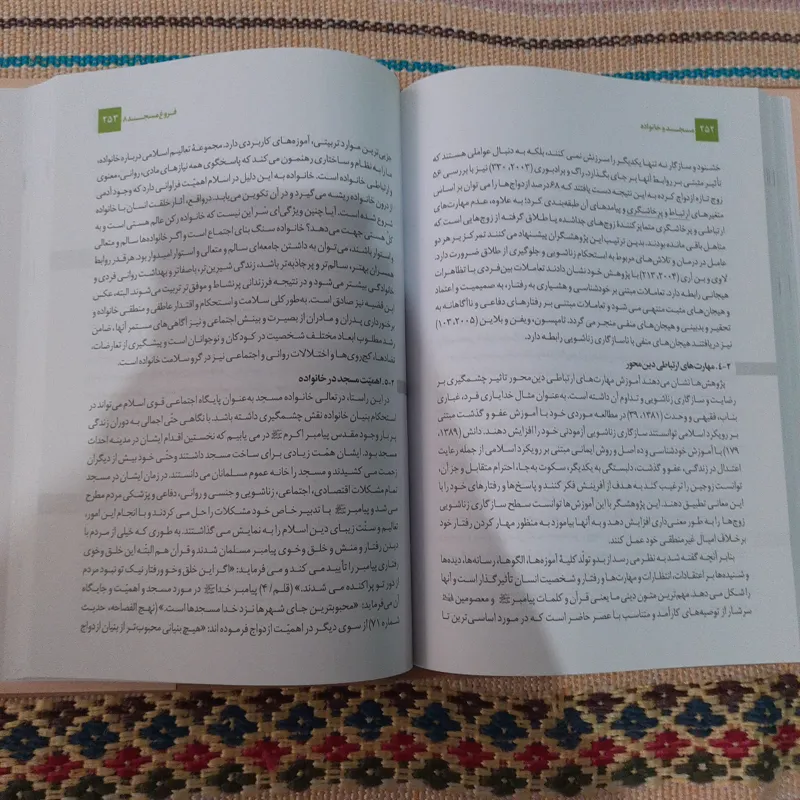 ۲۵۲ مسجد و خانواده
خشنود و سازگار نه تنها یکدیگر را سرزنش نمی کنند، بلکه به دنبال عواملی هستند که
تأثیر مثبتی بر روابط آنها بر جای بگذارد. راگ و برادبوری (۲۰۰۳، ۳۳۰) نیز با بررسی ۵۶
زوج تازه ازدواج کرده به این نتیجه دست یافتند که ۶۸ درصد ازدواج‌ها را می توان بر اساس
متغیرهای ارتباط و پرخاشگری و پیامدهای آن طبقه‌بندی کرد؛ به علاوه، عدم مهارت‌های
ارتباطی و پرخاشگری متمایزکنندهٔ زوج‌های جداشده یا طلاق گرفته از زوج‌هایی است که
متاهل باقی مانده بودند. بدین ترتیب این پژوهشگران پیشنهاد می‌کنند تمرکز بر هر دو
عامل در درمان و تلاش‌های مربوط به استحکام زناشویی و جلوگیری از طلاق ضرورت دارد.
لاوی وبن آری (۲۰۰۴، ۲۱۳) با پژوهش خود نشان دادند تعاملات بین‌فردی با تظاهرات
هیجانی رابطه دارد. تعاملات مبتنی بر خودشناسی و هشیاری به رفتار، به صمیمیت و اعتماد
و هیجان‌های مثبت منتهی می شود و تعاملات مبتنی بر رفتارهای دفاعی و ناآگاهانه به
تحقیر و بدبینی و هیجان‌های منفی منجر می گردد. تامپسون، ویفن و بلاین (۲۰۰۵، ۱۰۳)
نیز دریافتند هیجان های منفی با ناسازگاری زناشویی رابطه دارد.
۴-۲. مهارت‌های ارتباطی دین‌محور
پژوهش‌ها نشان می‌دهند آموزش مهارت‌های ارتباطی دین‌محور تاثیر چشمگیری بر
رضایت و سازگاری زناشویی و تداوم آن داشته است. به‌عنوان مثال خدایاری فرد، غباری
بناب، فقیهی و وحدت (۱۳۸۱، ۳۹) در مطالعه موردی خود با آموزش عفو و گذشت مبتنی
بر رویکرد اسلامی توانستند سازگاری زناشویی آزمودنی خود را افزایش دهند. دانش (۱۳۸۹،
۱۷۹) با آموزش خودشناسی و ده اصل و روش ایمانی مبتنی بر رویکرد اسلامی از جمله رعایت
اعتدال در زندگی، عفو و گذشت، دلبستگی به یکدیگر، سکوت به‌جا، احترام متقابل و جز آن،
توانست زوجین را ترغیب کند به هدف از آفرینش فکر کنند و پاسخ‌ها و رفتارهای خود را با
این معانی تطبیق دهند. این پژوهشگر با این آموزش‌ها توانست سطح سازگاری زناشویی
زوج‌ها را به طور معنی‌داری افزایش دهد و به آنها بیاموزد به منظور مهار کردن رفتار خود
برخلاف امیال غیرمنطقی خود عمل کنند.
بنابر آنچه گفته شد به نظر می رسد از بدو تولّد کلیهٔ آموزه‌ها، الگوها، رسانه‌ها، دیده‌ها
و شنیده‌ها بر اعتقادات، انتظارات و مهارت‌ها و رفتار و شخصیت انسان تأثیرگذار است و آنها
را شکل می دهد. مهم‌ترین متون دینی ما یعنی قرآن و کلمات پیامبر ﷺ و معصومین
سرشار از توصیه‌های کارآمد و متناسب با عصر حاضر است که در مورد اساسی ترین تا
فروغ مسجد ۸ ۲۵۳
جزیی ترین موارد تربیتی، آموزه‌های کاربردی دارد. مجموعهٔ تعالیم اسلامی درباره خانواده،
ما را به نظام و ساختاری رهنمون می‌کند که پاسخگوی همه نیازهای مادی، روانی، معنوی
و ارتباطی خانواده است. خانواده به این دلیل در اسلام اهمّیت فراوانی دارد که وجود آدمی
از درون خانواده ریشه می گیرد و در آن تکوین می‌یابد. درواقع، آغاز خلقت انسان با خانواده
شروع شده است. آیا چنین ویژگی‌ای سَر این نیست که خانواده رکن عالم هستی است و به
کلّ هستی جهت می‌دهد؟ خانواده سنگ بنای اجتماع است و اگر خانواده‌ها سالم و متعالی
و استوار باشند، می‌توان به داشتن جامعه‌ای سالم و متعالی و استوار امیدوار بود. هرقدر روابط
همسران بهتر، سالم‌تر و پرجاذبه‌تر باشد، زندگی شیرین‌تر، باصفاتر و بهداشت روانی فردی و
خانوادگی بیشتر می‌شود و در نتیجه فرزندانی پرنشاط و موفق‌تر تربیت می‌شوند. البته، عکس
این قضیه نیز صادق است. به‌طور کلی سلامت و استحکام و اقتدار عاطفی و منطقی خانواده و
برخورداری پدران و مادران از بصیرت و بینش اجتماعی و نیز آگاهی‌های مستمر آنها، ضامن
رشد مطلوب ابعاد مختلف شخصیت در کودکان و نوجوانان است و پیشگیری از تعارضات،
تضادها، کج‌روی‌ها و اختلالات روانی و اجتماعی نیز در گرو سلامت خانواده است.
۵-۲. اهمّیت مسجد در خانواده
در این راستا، در تعالی خانواده مسجد به‌عنوان پایگاه اجتماعی قوی اسلام می‌تواند در
استحکام بنیان خانواده نقش چشمگیری داشته باشد. با نگاهی حتّی اجمالی به دوران زندگی
پر بار وجود مقدس پیامبر اکرم ﷺ در می یابیم که نخستین اقدام ایشان در مدینه احداث
مسجد بود. ایشان همّت زیادی برای ساخت مسجد داشتند و حتّی خود بیش از دیگران
زحمت می کشیدند و مسجد را خانه عموم مسلمانان می دانستند. در زمان ایشان در مسجد
تمام مشکلات اقتصادی، اجتماعی، زناشویی و جنسی و روانی، دفاعی و پزشکی مردم مطرح
می شد و پیامبر ﷺ با تدبیر خاص خود مشکلات را حل می کردند و با انجام این امور،
تعالیم و سنّت زیبای دین اسلام را به نمایش می گذاشتند. به طوری که خیلی از مردم با
دیدن رفتار و منش و خلق وخوی پیامبر مسلمان شدند و قرآن هم البتّه این خلق وخوی
رفتاری پیامبر را تأیید می کند و می فرماید: «اگر این خلق وخو و رفتار نیک تو نبود مردم
از دور تو پراکنده می شدند.» (قلم/۴) پیامبر خدا ﷺ در مورد مسجد و اهمّیت و جایگاه
آن می‌فرماید: «محبوبترین جای شهرها نزد خدا مسجدها است.» (نهج الفصاحه، حدیث
شماره ۷۱) از سوی دیگر در اهمّیت ازدواج فرموده اند: «هیچ بنیانی محبوب‌تر از بنیان ازدواج